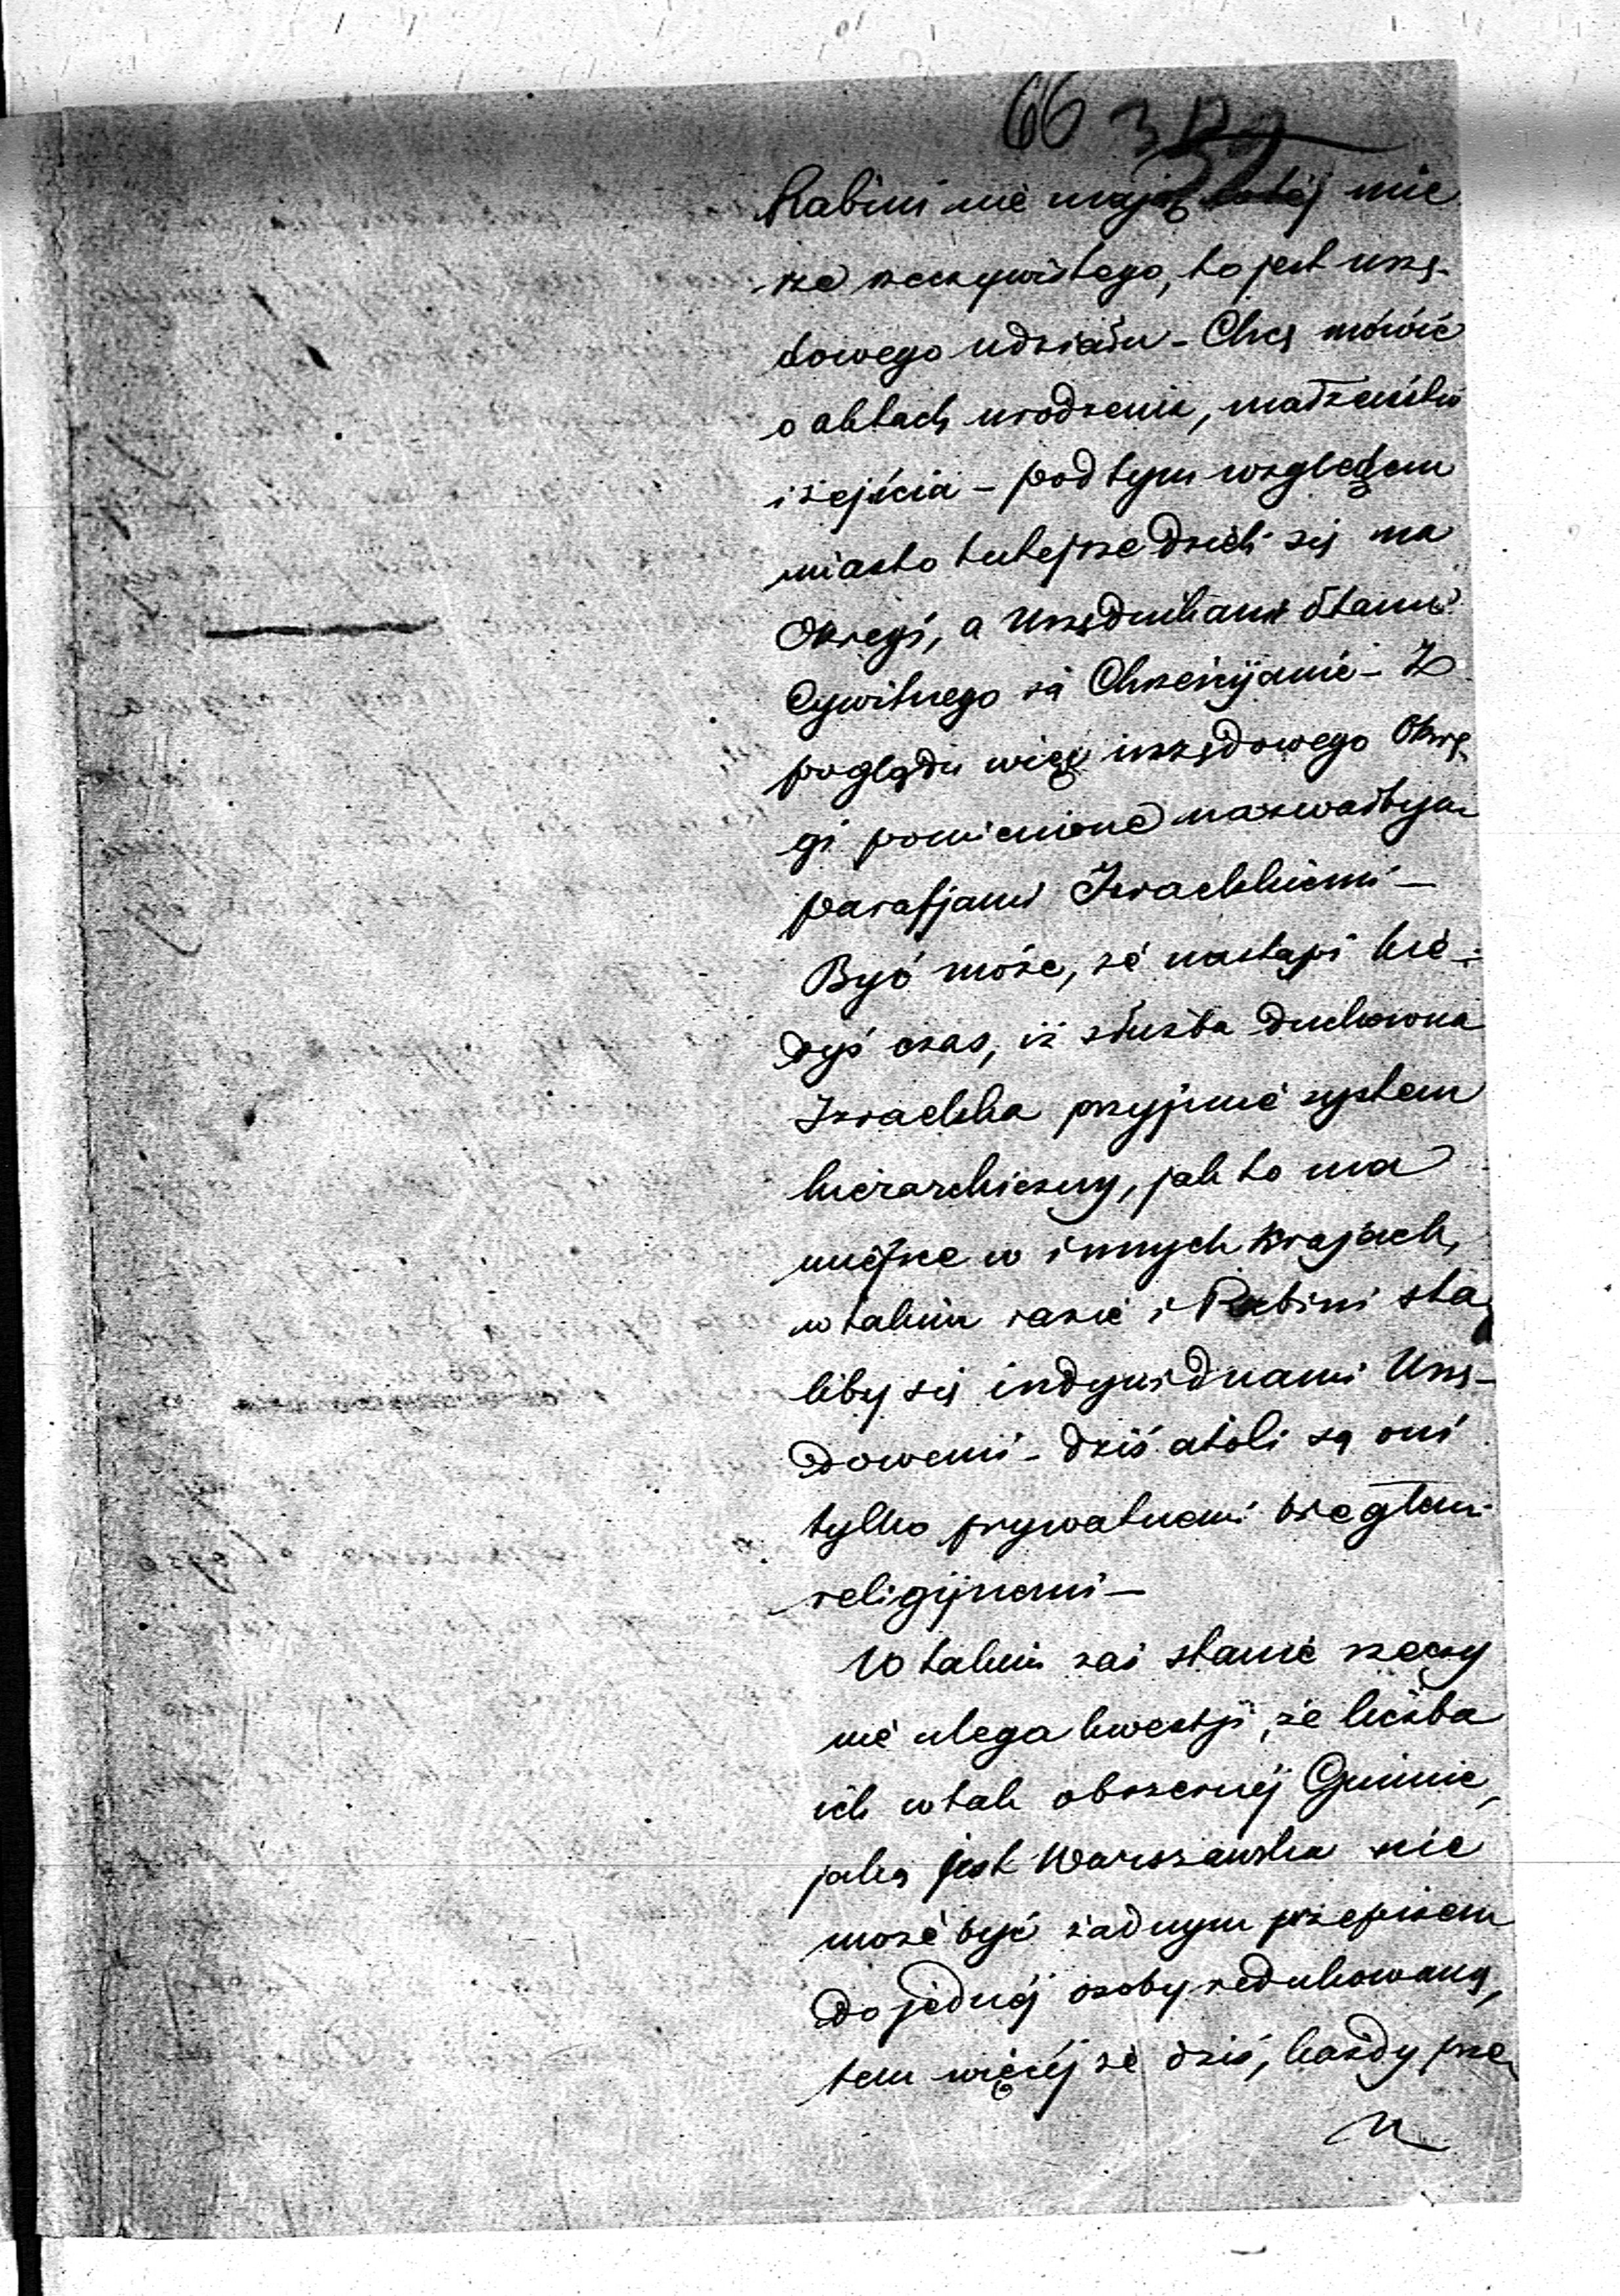 66
Rabini nie mają w tej mie
rze rzeczywistego, to jest urzę-
dowego udziału - Chcę mówić
o aktach urodzenia, małżeństw
i zejścia - pod tym względem
miasto tutejsze dzieli się na
Okręgi, a Urzędnikami Stanu
Cywilnego są Chrześcijanie - Z
poglądu więc urzędowego Okrę-
gi pomienione nazwałbym
parafjami Izraelskiemi -
Być może, że nastąpi kie-
dyś czas, iż służba duchowna
Izraelska przyjmie system
hierarchiczny, jak to ma
miejsce w innych krajach,
w takim razie i Rabini sta
liby się indywiduami Urzę-
dowemi - dziś atoli są oni
tylko prywatnemi
religijnemi -
W takim zaś stanie rzeczy
nie ulega kwestji, że liczba
ich w tak obszernéj Gminie,
jaką jest Warszawska nie
może być żadnym przepisem
do jednéj osoby redukowaną,
tem więcéj że dziś, każdy prze